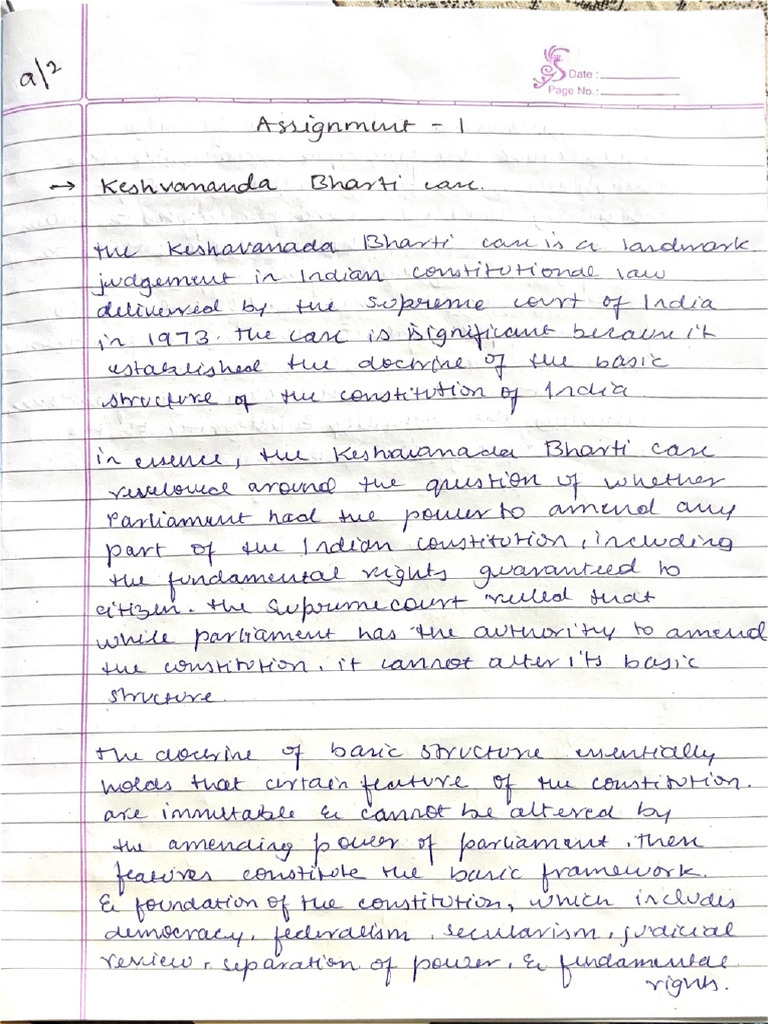 a/2
Date :
Page No.:
Assignment - 1
→ Keshvananda Bharti case.
the Keshavanada Bharti case is a landmark
judgement in Indian constitutional law
delivered by the supreme court of India
in 1973. the case is significant because it
established the doctrine of the basic
structure of the constitution of India
in essence, the Keshavanada Bharti case
revolved around the question of whether
Parliament had the power to amend any
part of the Indian constitution, including
the fundamental rights guaranteed to
citizen. the supreme court ruled that
while parliament has the authority to amend
the constitution, it cannot alter its basic
structure.
the doctrine of basic structure essentially
holds that certain feature of the constitution.
are immutable & cannot be altered by
the amending power of parliament. these
features constitute the basic framework.
& foundation of the constitution, which includes
democracy, federalism, secularism, judicial
review, separation of power, & fundamental
rights.